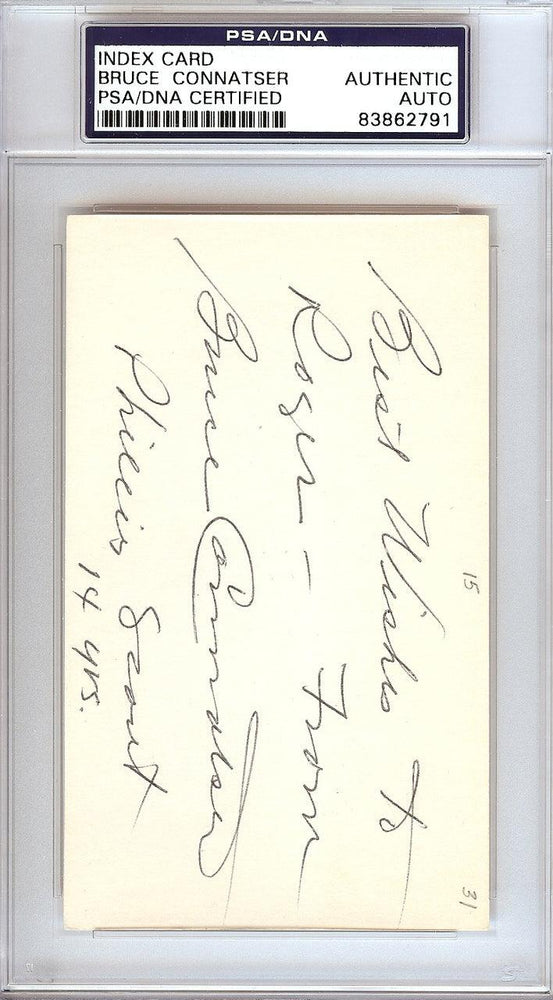 PSA/DNA
INDEX CARD
BRUCE CONNATSER
PSA/DNA CERTIFIED
AUTHENTIC
AUTO
83862791
Best Wishes to
Roger – From
Bruce Connatser
Phillies Scout
14 yrs.
15
31